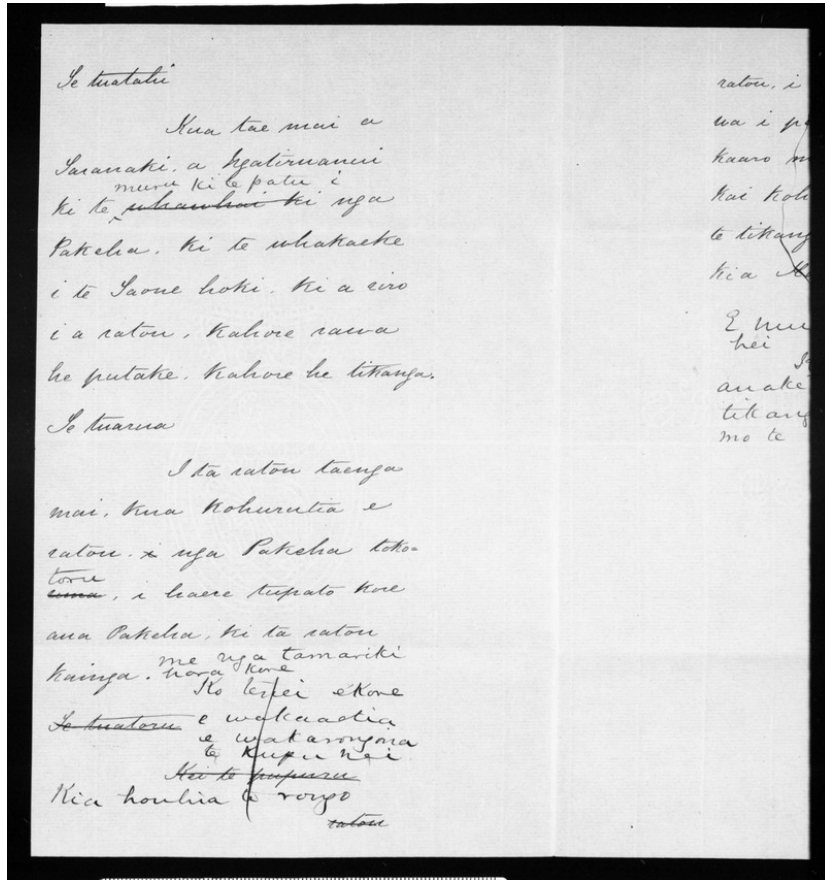 Te tuatahi
Kua tae mai a
Taranaki, a Ngatiruanui
muru ki te patu i
ki te whawhai ki nga
Pakeha. ki te whakaeke
i te Taone hoki. ki a riro
i a ratou, kahore rawa
he putake. kahore he tikanga.
Te tuarua
I ta ratou taenga
mai, kua kohurutia e
ratou. i nga Pakeha toko=
toru
rima, i haere tupato kore
ana Pakeha, ki ta ratou
kainga. me nga tamariki
hara kore
Ko tenei ekore
Te tuatoru e wakaaetia
e wakarongona
te kupu nei
Kei te pupuru
Kia houhia te rongo
ratou
ratou, i
wa i
kaaro
kai koh
te tikang
kia
E
hei
anake
tikang
mo te